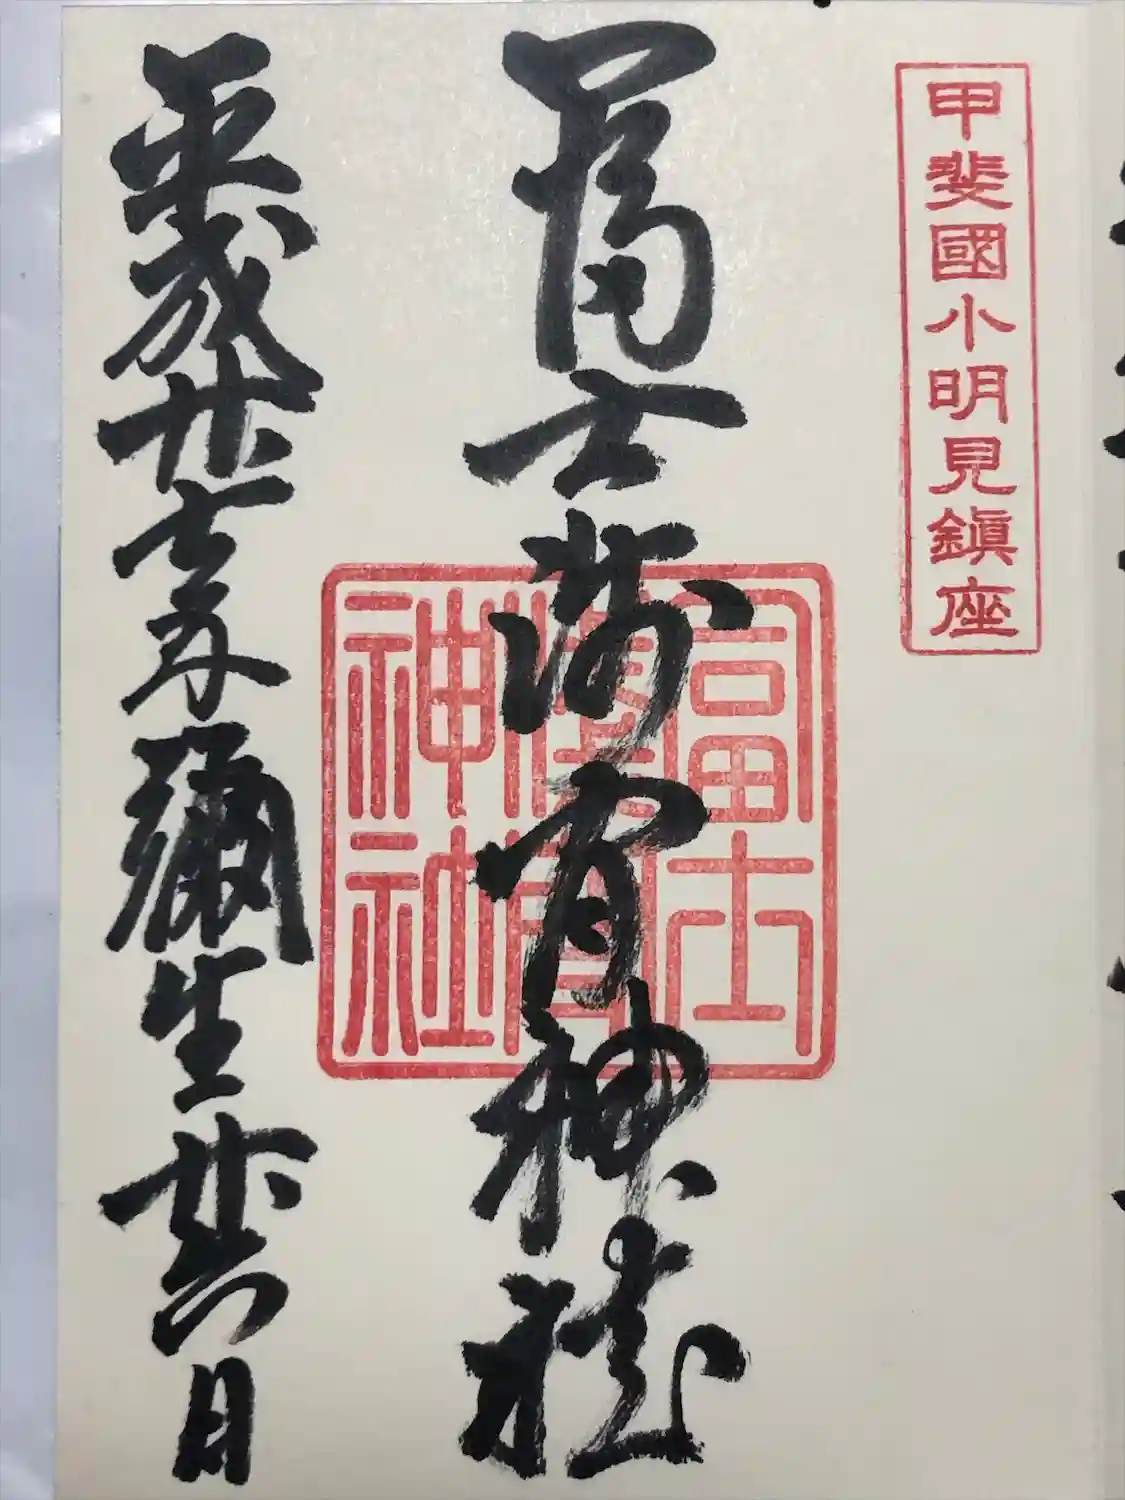 甲斐國小明見鎭座
富士淺間神社
富士
淺間
神社
平成廿七年彌生廿六日